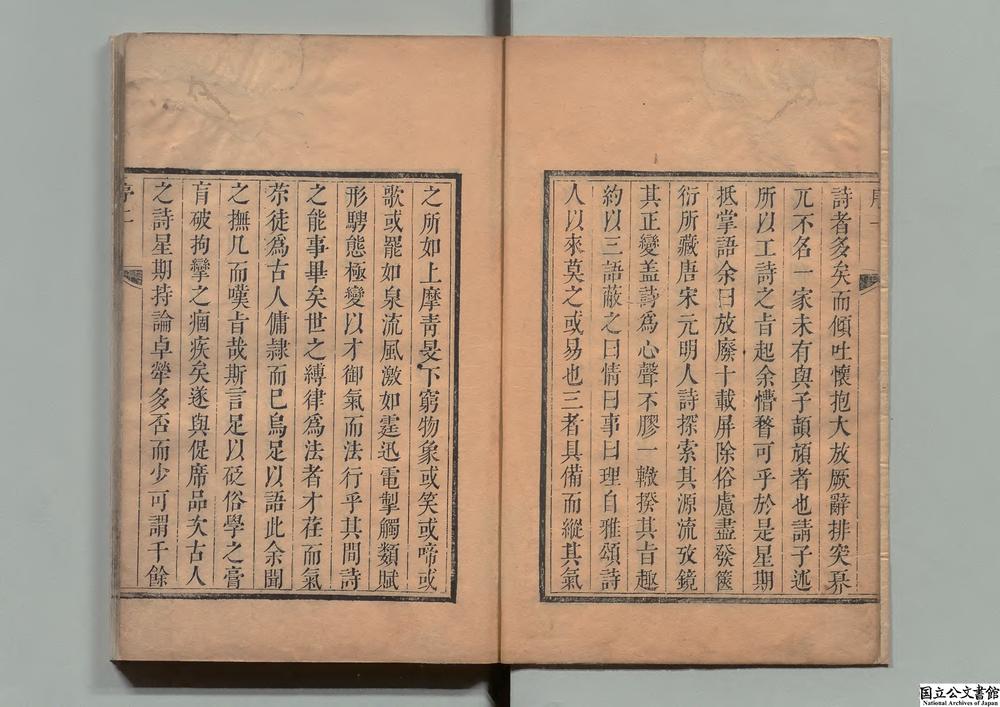 詩者多矣而傾吐懷抱大放厥辭排突界
兀不名一家未有與子頡頏者也請子述
所以工詩之旨起余懵瞀可乎於是星期
抵掌語余曰放廢十載屏除俗慮盡發篋
衍所藏唐宋元明人詩探索其源流攷鏡
其正變盖詩爲心聲不膠一轍揆其旨趣
約以三語蔽之曰情曰事曰理自雅頌詩
人以來莫之或易也三者具備而縱其氣
之所如上摩靑旻下窮物象或笑或啼或
歌或罷如泉流風激如霆迅電掣觸類賦
形騁態極變以才御氣而法行乎其間詩
之能事畢矣世之縛律爲法者才荏而氣
苶徒爲古人傭隷而已烏足以語此余聞
之撫几而嘆旨哉斯言足以砭俗學之膏
肓破拘攣之痼疾矣遂與促席品次古人
之詩星期持論卓犖多否而少可謂千餘
序二
国立公文書館
National Archives of Japan